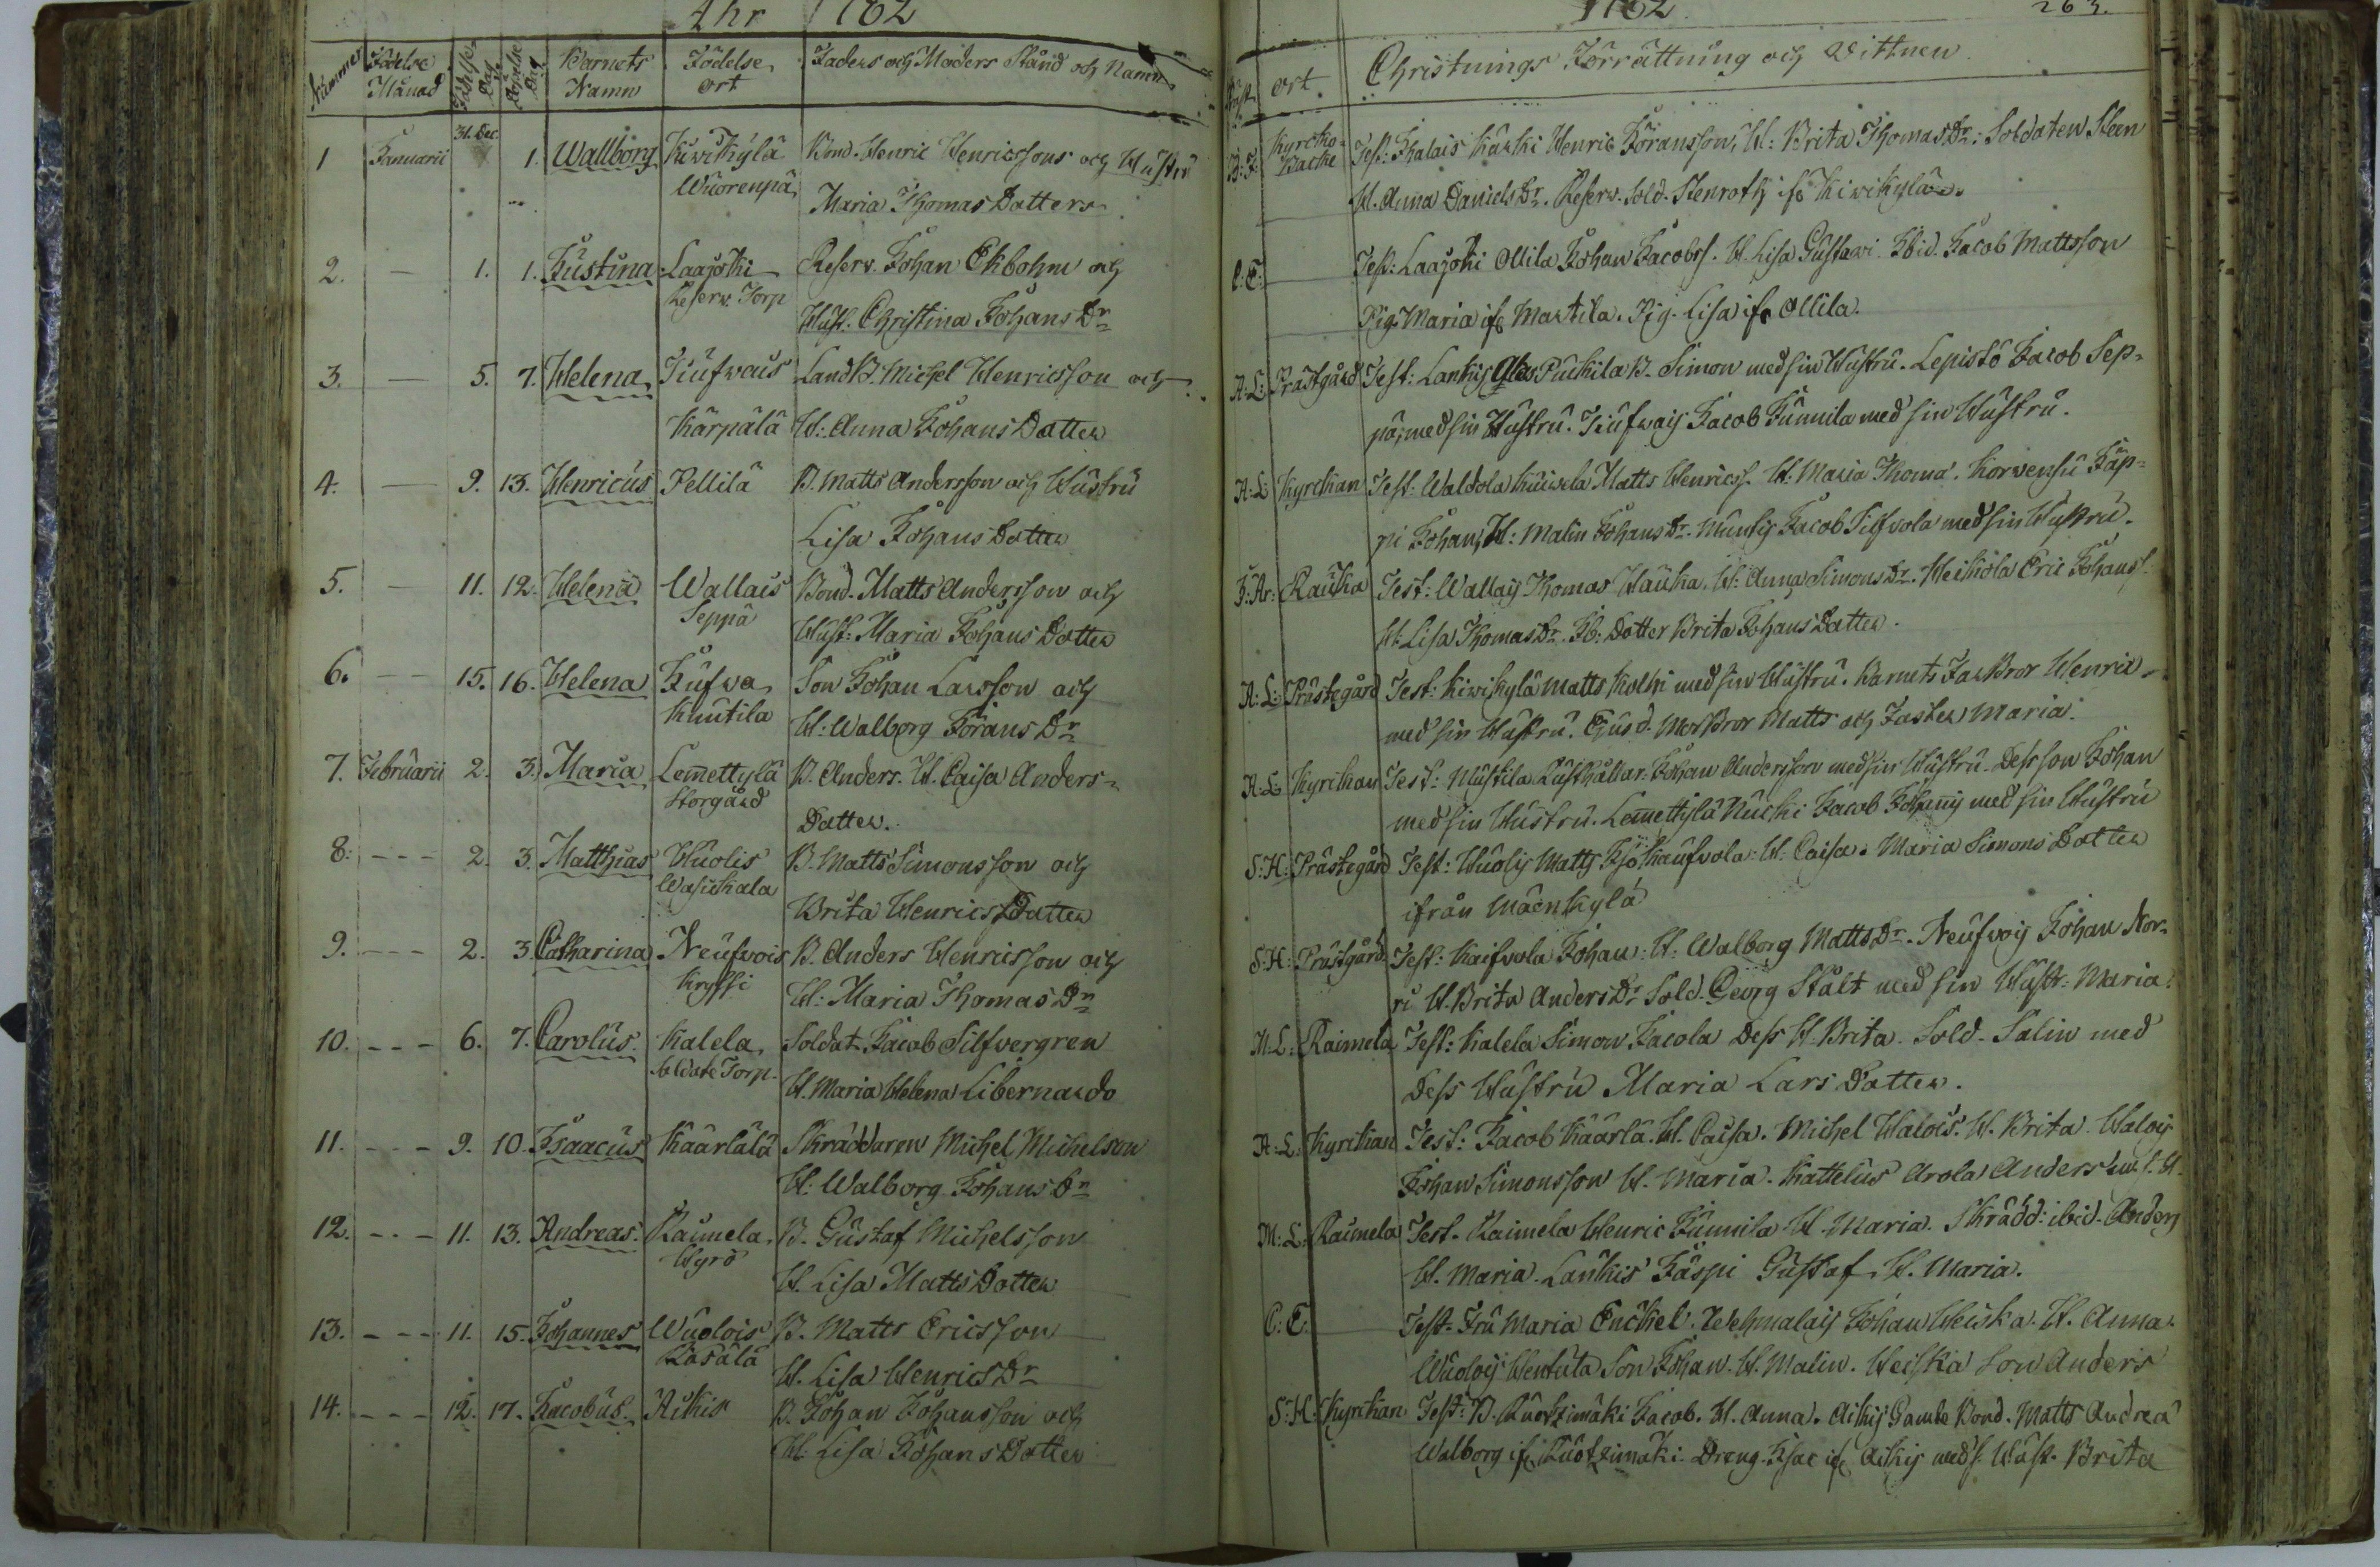 Åhr 1782
Nummer Födelse Månad Födelse Dag Döpelse Dag Barnets Namn Födelse ort Faders och Moders Stånd och Namn
1 Januarii 31. Dec. 1. Wallborg Kiwikylä Bond. Henric Henricssons och Hustru
Wuorenpä Maria Thomas Datters
2. — 1. 1. Justina Laajoki Reserv. Johan Ekbohm och
Reserv. Torp Hust. Christina Johans Dr
3. — 5. 7. Helena Tiufwais Land B. Michel Henricsson och
Kärpälä H: Anna Johans Datter
4. — 9. 13. Henricus Pellilä B. Matts Andersson och Hustru
Lisa Johans Datter
5. — 11. 12. Helena Wallais Bond. Matts Andersson och
Seppä Hust: Maria Johans Datter
6. — 15. 16. Helena Jufwa Son Johan Larsson och
Knutila H: Walborg Jörans Dr
7. Februarii 2. 3. Maria Lemettylä B. Anders. H. Caisa Anders-
Storgård Datter.
8. - - - 2. 3. Matthias Huolis B. Matts Simonsson och
Wasikkala Brita Henrics Datter
9. - - - 2. 3. Catharina Neufwois B. Anders Henricsson och
Kryssi H: Maria Thomas Dr
10. - - - 6. 7. Carolus Kalela Soldat Jacob Silfvergren
Soldate Torp. H. Maria Helena Libernardo
11. - - - 9. 10. Isaacus Käärlälä Skräddaren Michel Michelson
H: Walborg Johans Dr
12. - - - 11. 13. Andreas. Raimela B. Gustaf Michelsson
Hyrö H. Lisa Matts Datter
13. - - - 11. 15. Johannes Wuolois B. Matts Ericsson
Kasälä H. Lisa Henrics Dr
14. - - - 12. 17. Jacobus. Aikis B. Johan Johansson och
H: Lisa Johans Datter
1782. 263.
ort. Christnings Förrättning och Vittnen
B: F: Kyrcko Backe Test: Ihalais Kärki Henric Göransson, H: Brita Thomas Dr: Soldaten Steen
H. Anna Daniels Dr. Reserv. Sold. Stenroth ifr Kiwikylä
C. E: Test: Laajoki Ollila Johan Jacobss. H. Lisa Gustavi. Ibid. Jacob Mattsson
Pig. Maria ifr Martila. Pig. Lisa ifr Ollila.
A: L: Prästgård Test: Lankis Puckila B. Simon med sin Hustru. Lepistö Jacob Sep-
pä, med sin Hustru. Tiufwais Jacob Junnila med sin Hustru.
A: L: Kyrckan Test: Waldola Matts Henricss. H: Maria Thomæ. Korvensu Jäp-
pi Johan, H: Malin Johans Dr. Jacob Silfvola med sin Hustru.
J: Ar: Rauka Test: Wallais Thomas Hauka, H: Anna Simons Dr. Heikola Eric Johanss.
H. Lisa Thomas Dr. Ib: Dotter Brita Johans Datter.
A: L: Prästegård Test: Kiwikylä Matts Kolki med sin Hustru. Barnets Far Bror Henric
med sin Hustru. Ejusd. Mor Bror Matts och Faster Maria.
A: L: Kyrckan Test: Mustila Rusthållar: Johan Andersson med sin Hustru. Dess son Johan
med sin Hustru. Lemettylä Nucki Jacob med sin Hustru
S: H: Prästegård Test: Huolis Matts H. Caisa. Maria Simons Dotter
ifrån Mäenkylä
S: H: Prästgård Test: Kaifvola Johan: H: Walborg Matts Dr. Neufvois Johan Nor-
ri H. Brita Anders Dr. Sold. Georg Stålt med sin Hustr: Maria.
M: L: Raimela Test: Kalela Simon Jacola Dess H. Brita. Sold. Salin med
Dess Hustru Maria Lars Datter.
A: L: Kyrckan Test: Jacob Käärlä. H. Caisa. Michel Walois. H. Brita. Walois
Johan Simonsson H. Maria. Kattelus Arola Anders
M: L: Raimela Test. Raimela Henric Junnila H. Maria. Skrädd: ibid. Anders
H. Maria. Lankis Jäspi Gustaf. H. Maria.
C: E. Test. Fru Maria Enckel. Wehmalais Johan Heiska. H. Anna.
Wuolois Hentula Son Johan. H. Malin. Heiska Son Anders
S: H: Kyrckan Test: B. Ruotzimäki Jacob. H. Anna. Aikis Gamle Bond. Matts Andreæ
Walborg ifr Ruotzimäki. Dreng. Isac ifr Aikis med s. Hust. Brita